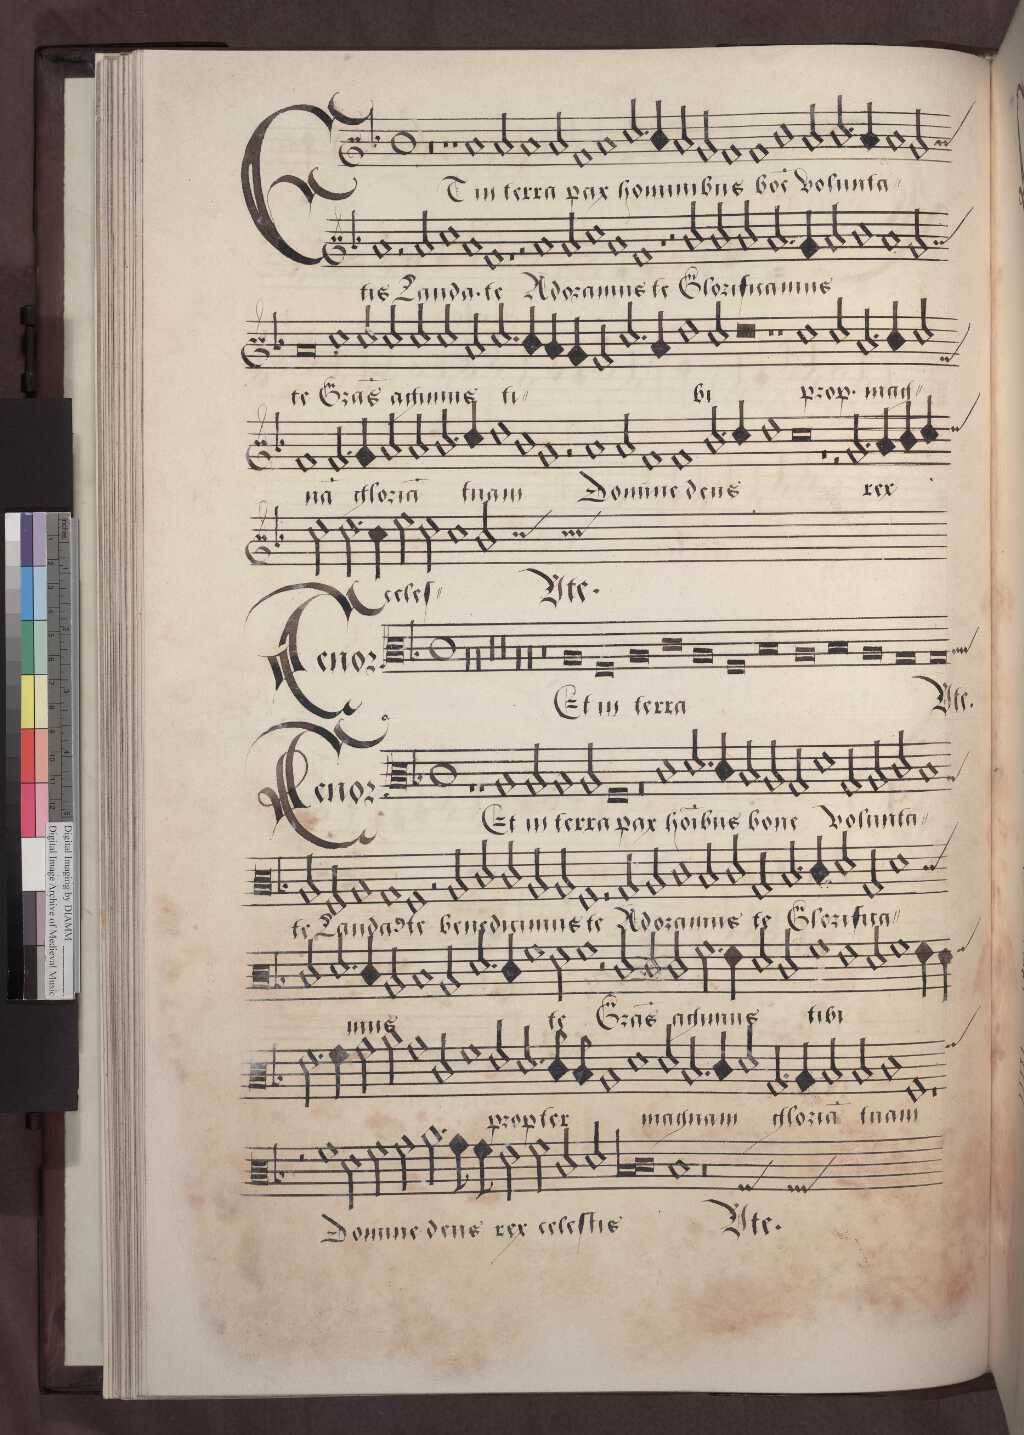 ET in terra pax hominibus boē volunta〃
tis Lauda·te Adoramus te Glorificamus
te Grās agimus ti〃 bi prop. mag〃
nā gloriā tuam Domine deus rex
celes〃 Vte.
Tenor.
Et in terra Vte.
Tenor.
Et in terra pax hoībus bone volunta〃
te Laudāte benedicimus te Adoramus te Glorifica〃
mus te Grās agimus tibi
propter magnam gloriā tuam
Domine deus rex celestis Vte.
Digital Imaging by DIAMM
Digital Image Archive of Medieval Music